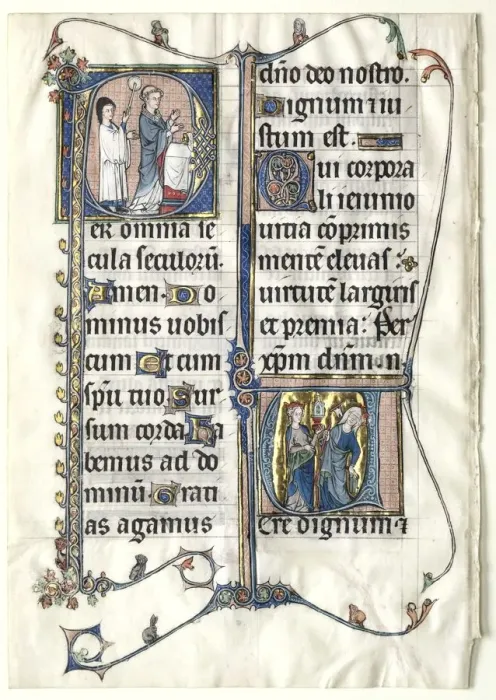 Per omnia se
cula seculorũ.
Amen. Do
minus uobis
cum Et cum
spũ tuo Sur
sum corda Ha
bemus ad do
minũ. Grati
as agamus
dño deo nostro.
Dignum ⁊ iu
stum est.
Qui corpora
li ieiunio
uitia cõprimis
mentẽ eleuas:
uirtutẽ largiris
et premia: Per
xp̃m dñm. n.
VEre dignum ⁊